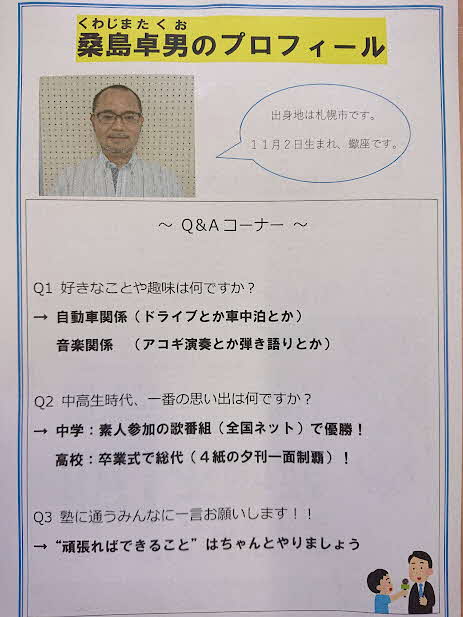 くわじまたくお
桑島卓男のプロフィール
出身地は札幌市です。
11月2日生まれ、蠍座です。
～ Q&Aコーナー ～
Q1 好きなことや趣味は何ですか？
→ 自動車関係（ドライブとか車中泊とか）
音楽関係　（アコギ演奏とか弾き語りとか）
Q2 中高生時代、一番の思い出は何ですか？
→ 中学：素人参加の歌番組（全国ネット）で優勝！
高校：卒業式で総代（４紙の夕刊一面制覇）！
Q3 塾に通うみんなに一言お願いします！！
→“頑張ればできること”はちゃんとやりましょう